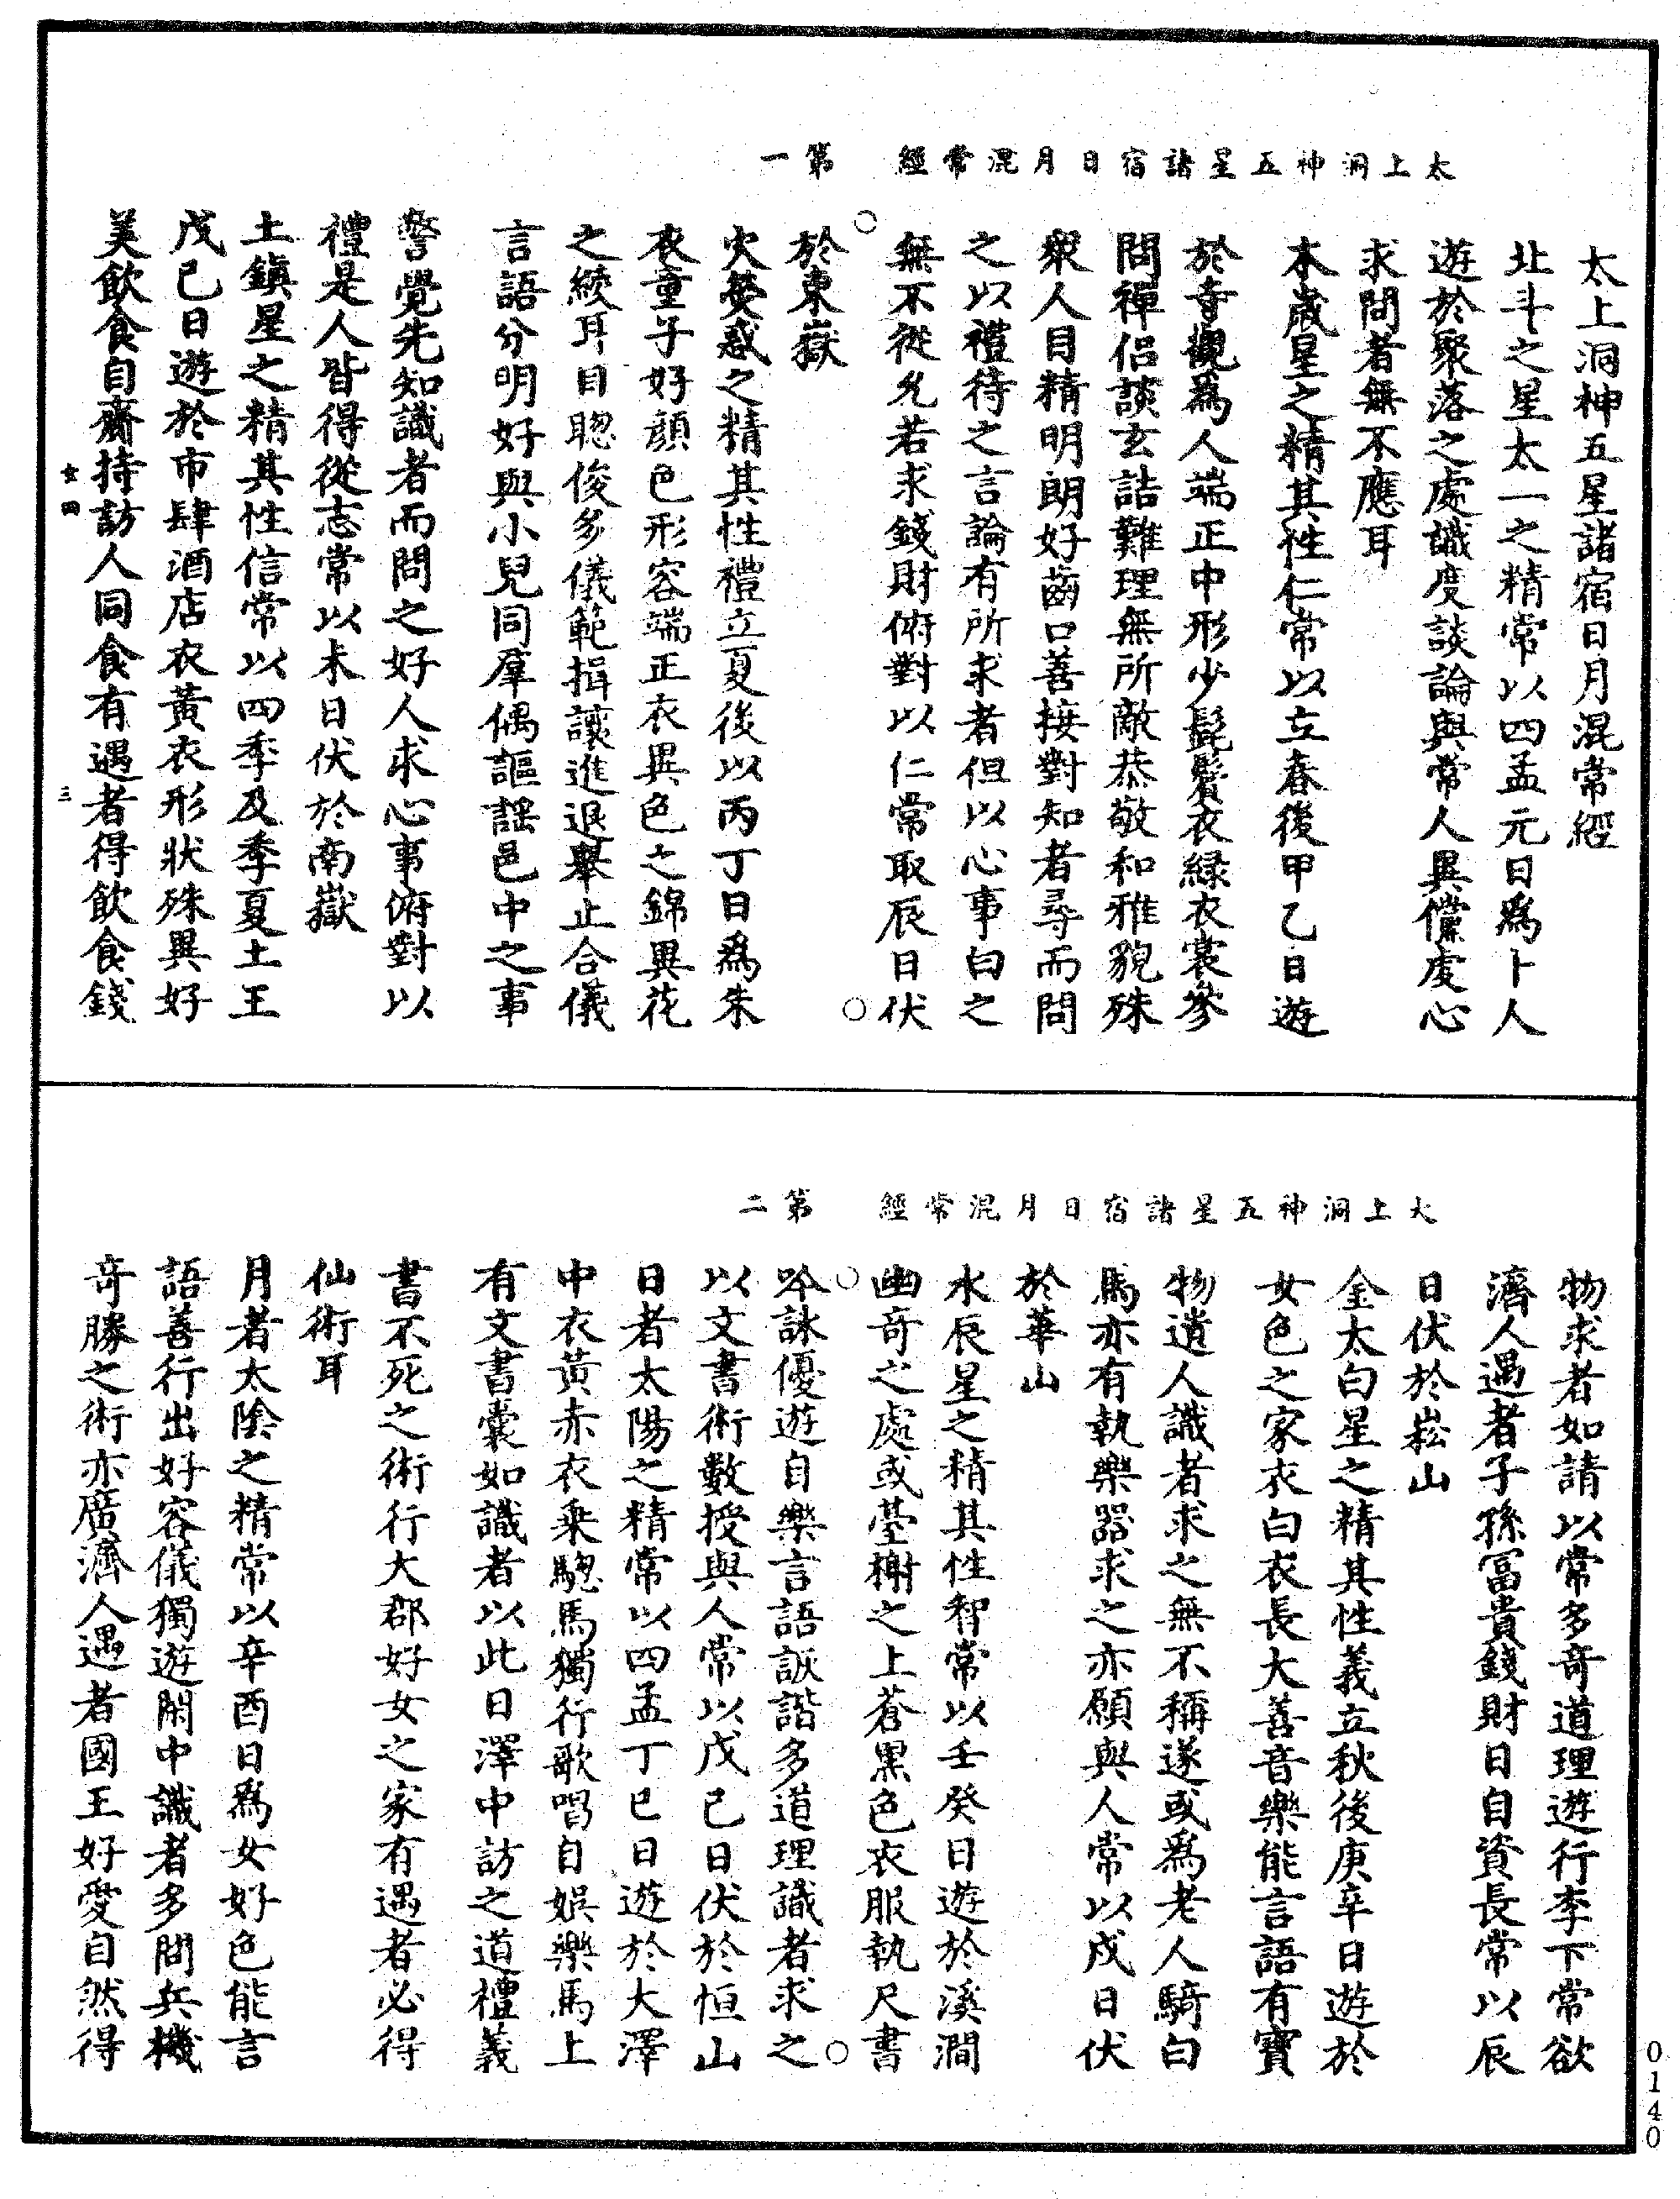 太上洞神五星諸宿日月混常經　第一
太上洞神五星諸宿日月混常經
北斗之星太一之精常以四孟元日爲卜人
遊於聚落之處識度談論與常人異儻虔心
求問者無不應耳
木歲星之精其性仁常以立春後甲乙日遊
於寺觀爲人端正中形少髭鬢衣緑衣裳參
問禪侶談玄詰難理無所敵恭敬和雅貌殊
衆人目精明朗好齒口善接對知者尋而問
之以禮待之言論有所求者但以心事白之
無不從允若求錢財俯對以仁常取辰日伏
於東嶽
火熒惑之精其性禮立夏後以丙丁日爲朱
衣童子好顔色形容端正衣異色之錦異花
之綾耳目聦俊多儀範揖讓進退舉止合儀
言語分明好與小兒同羣偶謳謡邑中之事
警覺先知識者而問之好人求心事俯對以
禮是人皆得從志常以未日伏於南嶽
土鎮星之精其性信常以四季及季夏土王
戊已日遊於市肆酒店衣黃衣形狀殊異好
美飲食自齎持訪人同食有遇者得飲食錢
女四　三
太上洞神五星諸宿日月混常經　第二
物求者如請以常多奇道理遊行李下常欲
濟人遇者子孫冨貴錢財日自資長常以辰
日伏於嵩山
金太白星之精其性義立秋後庚辛日遊於
女色之家衣白衣長大善音樂能言語有寶
物遺人識者求之無不稱遂或爲老人騎白
馬亦有執樂器求之亦願與人常以戌日伏
於華山
水辰星之精其性智常以壬癸日遊於溪澗
幽奇之處或臺榭之上蒼黒色衣服執尺書
吟詠優遊自樂言語詼諧多道理識者求之
以文書術數授與人常以戊己日伏於恒山
日者太陽之精常以四孟丁巳日遊於大澤
中衣黃赤衣乗驄馬獨行歌唱自娯樂馬上
有文書囊如識者以此日澤中訪之道禮義
書不死之術行大郡好女之家有遇者必得
仙術耳
月者太陰之精常以辛酉日爲女好色能言
語善行出好容儀獨遊閑中識者多問兵機
奇勝之術亦廣濟人遇者國王好愛自然得
0140